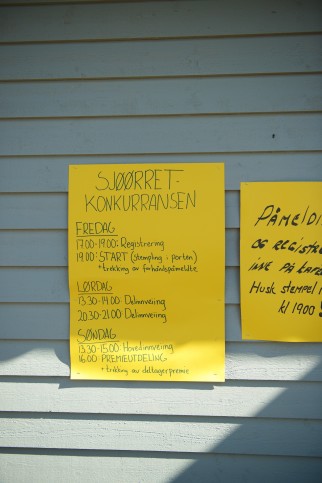 SJØØRRET-
KONKURRANSEN
FREDAG
17.00-19.00: Registrering
19.00: START (stempling i porten)
+ trekking av forhåndspåmeldte
LØRDAG
13.30-14.00 Delinnveiing
20.30-21.00 Delinnveiing
SØNDAG
13.30-15.00 Hovedinnveiing
16.00 PREMIEUTDELING
+ trekking av deltagerpremie
PÅMELDI
OG REGISTR
INNE PÅ
HUSK stempel
kl 1900